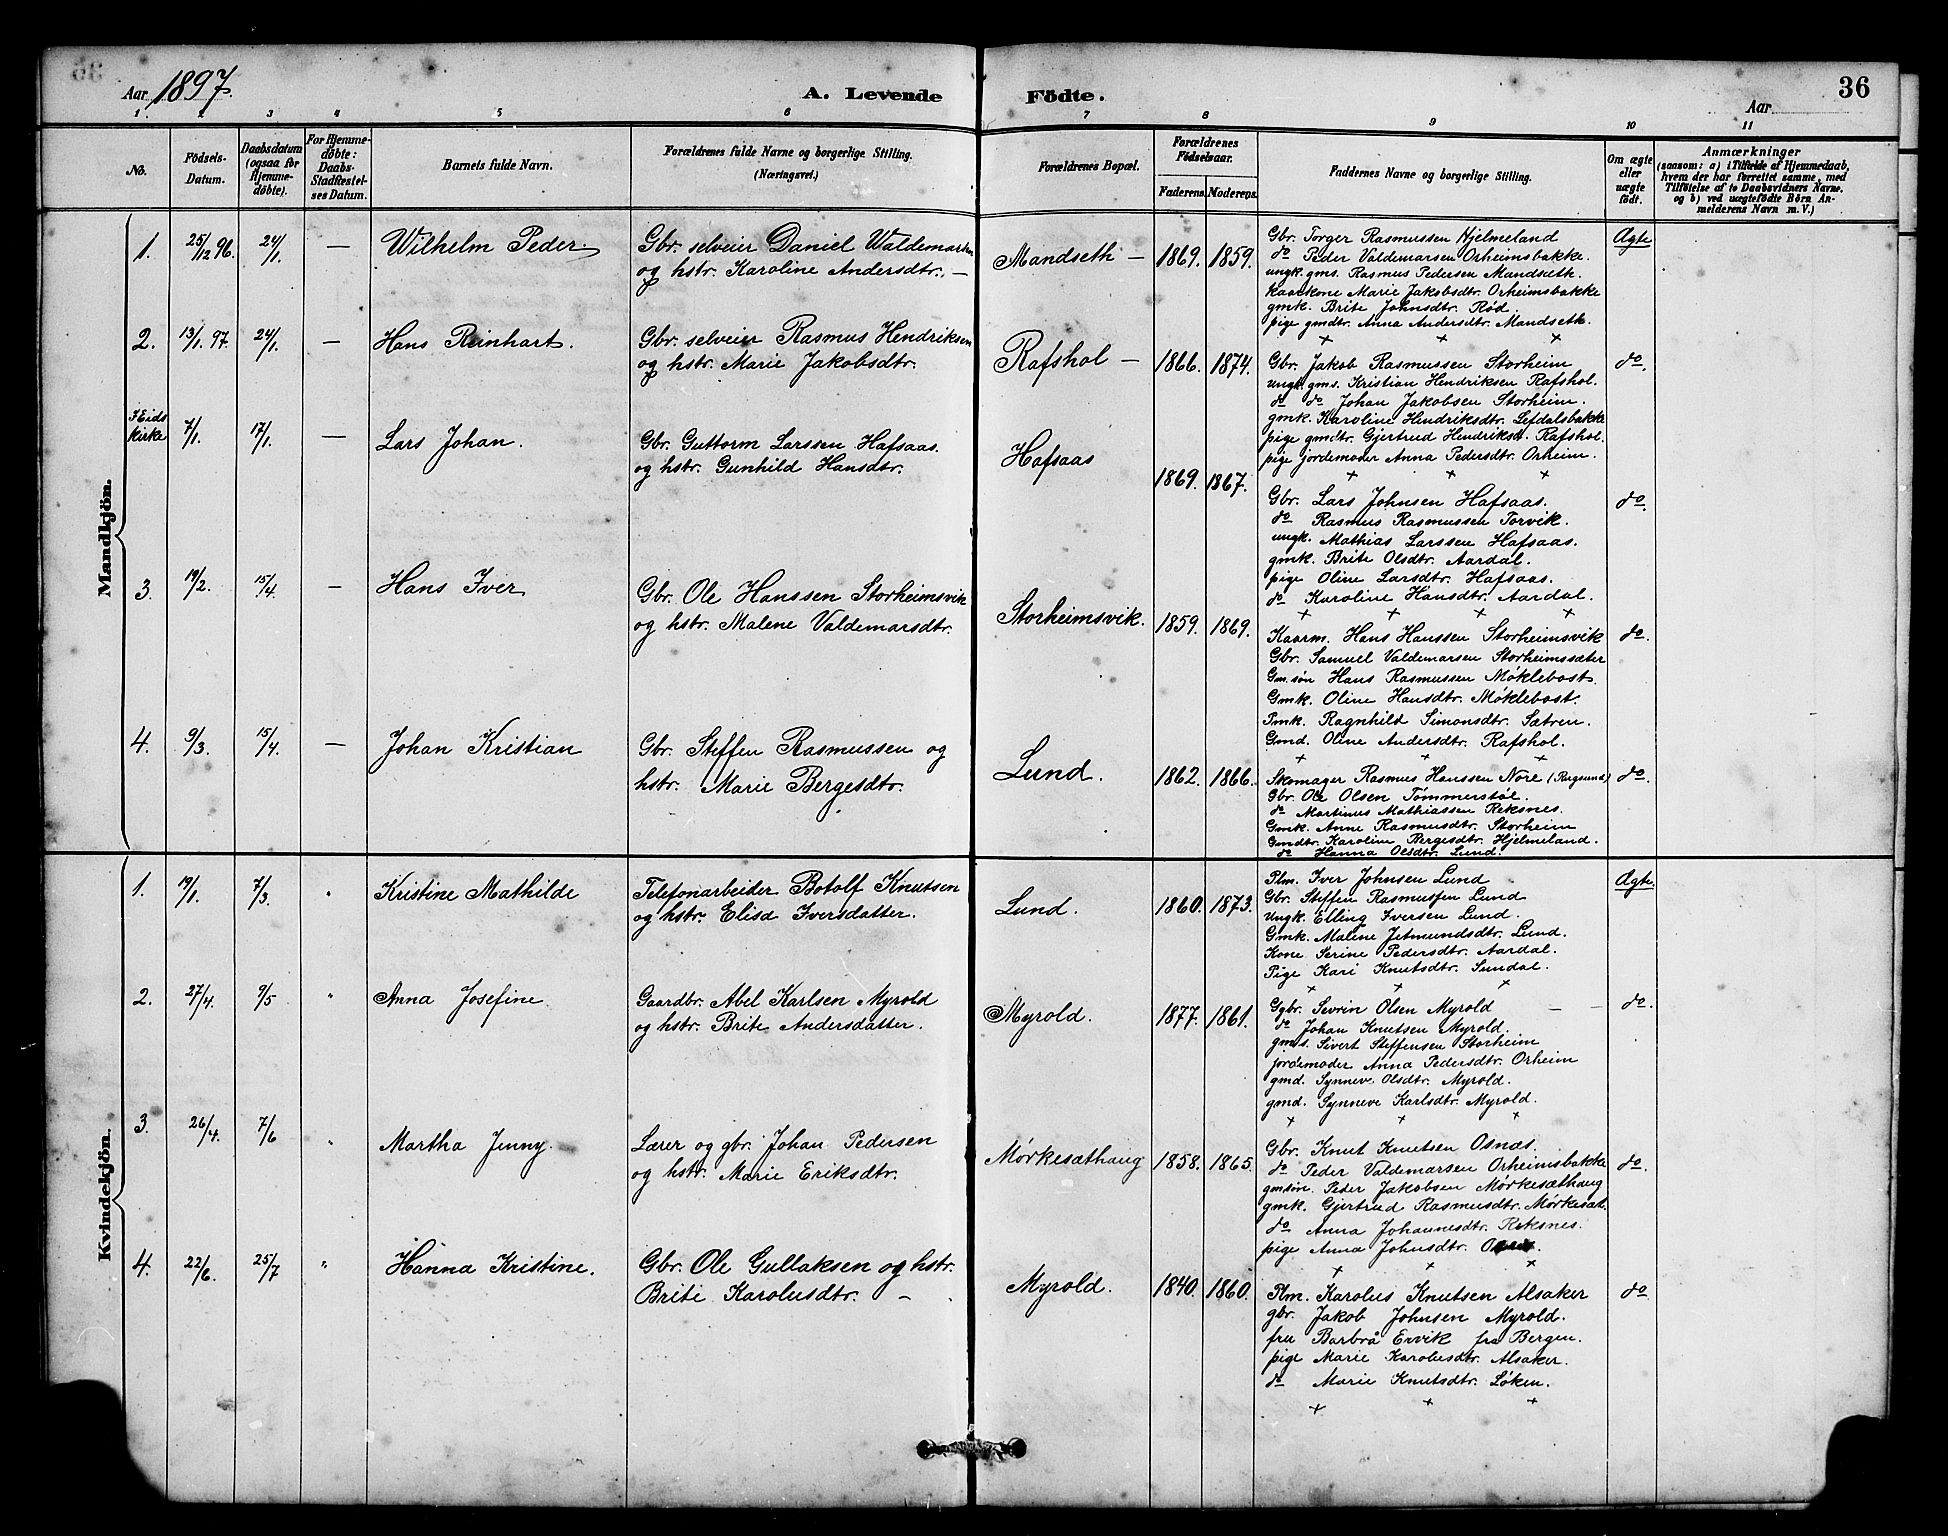 Aar 1897.
A. Levende Födte.
36
Aar
1. 2 3 4 5 6 7 8 9 10 11
No.
Födsels-
Datum.
Daabsdatum
(ogsaa for
Hjemme-
döbte).
For Hjemme-
döbte:
Daabs-
Stadfæstel-
ses Datum.
Barnets fulde Navn.
Forældrenes fulde Navne og borgerlige Stilling.
(Næringsvei.)
Forældrenes Bopæl.
Forældrenes
Födselsaar.
Faderens. Moderens.
Faddernes Navne og borgerlige Stilling.
Om ægte
eller
uægte
født.
Anmærkninger
(saasom: a) i Tilfælde af Hjemmedaab,
hvem der har forrettet samme, med
Tilföielse af to Daabsvidners Navne,
og b) ved uægtefödte Börn An-
melderens Navn m. V.)
Mandkjön.
1. 25/12 96. 24/1. — Wilhelm Peder
Gbr. selveier Daniel Waldemarsen
og hstr. Karoline Andersdtr. —
Mandseth — 1869. 1859.
Gbr. Torger Rasmussen Hjelmeland
do Peder Valdemarsen Orheimsbakke.
ungk. gms. Rasmus Pedersen Mandseth.
kaarkone Marie Jakobsdtr. Orheimsbakke
gmk. Brite Johnsdtr. Rød.
pige gmdtr. Anna Andersdtr. Mandseth.
+ + +
Ægte
2. 13/1. 97. 24/1. — Hans Reinhart.
Gbr. selveier Rasmus Hendriksen
og hstr. Marie Jakobsdtr.
Rafshol — 1866. 1874.
Gbr. Jakob Rasmussen Storheim
ungk. gms. Kristian Hendriksen Rafshol.
do do Johan Jakobsen Storheim.
gmk. Karoline Hendriksdtr. Lefdalsbakke
pige gmdtr. Gjertrud Hendriksdt. Rafshol.
pige jordemoder Anna Pedersdtr. Orheim.
+ + +
do.
I Eids
kirke 7/1. 17/1. — Lars Johan.
Gbr. Guttorm Larssen Hafsaas.
og hstr. Gunhild Hansdtr.
Hafsaas 1869. 1867.
Gbr. Lars Johnsen Hafsaas.
do Rasmus Rasmussen Torvik.
ungk. Mathias Larssen Hafsaas.
gmk. Brite Olsdtr. Aardal.
pige Oline Larsdtr. Hafsaas.
do Karoline Hansdtr. Aardal.
+ + + +
do.
3. 19/2. 15/4. — Hans Iver
Gbr. Ole Hanssen Storheimsvik
og hstr. Malene Valdemarsdtr.
Storheimsvik. 1859. 1869.
Kaarm. Hans Hanssen Storheimsvik
Gbr. Samuel Valdemarsen Storheimssæter
Gm.søn Hans Rasmussen Møklebost.
Gmk. Oline Hansdtr. Møklebost.
Pmk. Ragnhild Simonsdtr. Sætren.
Gmd. Oline Andersdtr. Rafshol.
+ + +
do.
4. 9/3. 15/4. — Johan Kristian
Gbr. Steffen Rasmussen og
hstr. Marie Bergesdtr.
Lund. 1862. 1866.
Skomager Rasmus Hanssen Nore (Rugsund)
Gbr. Ole Olsen Tømmerstøl.
do Martinus Mathiassen Reksnes.
Gmk. Anne Rasmusdtr. Storheim
Gmdtr. Karoline Bergesdtr. Hjelmeland.
do Hanna Olsdtr. Lund.
do.
Kvindekjön.
1. 19/1. 7/3. " Kristine Mathilde
Telefonarbeider Botolf Knutsen
og hstr. Elisa Iversdatter.
Lund. 1860. 1873.
Plm. Iver Johnsen Lund
Gbr. Steffen Rasmussen Lund
Ungk. Elling Iversen Lund.
Gmk. Malene Jetmundsdtr. Lund.
Kone Serine Pedersdtr. Aardal.
Pige Kari Knutsdtr. Sundal.
+ + +
Ægte.
2. 27/4. 9/5 " Anna Josefine.
Gaardbr. Abel Karlsen Myrold
og hstr. Brite Andersdatter.
Myrold. 1877. 1861.
Ggbr. Sevrin Olsen Myrold — —
do Johan Knutsen Myrold.
gms. Sivert Steffensen Storheim
jordemoder Anna Pedersdtr. Orheim
gmd. Synneve Olsdtr. Myrold.
gmd. Synneve Karlsdtr. Myrold.
+ + +
do.
3. 26/4. 7/6 " Martha Jenny.
Lærer og gbr. Johan Pedersen
og hstr. Marie Eriksdtr.
Mørkesæthaug 1858. 1865.
Gbr. Knut Knutsen Osnæs.
do Peder Valdemarsen Orheimsbakke
gmsøn. Peder Jakobsen Mørkesæthaug
gmk. Gjertrud Rasmusdtr. Mørkesæt.
do Anna Johannesdtr. Reksnes.
pige Anna Johnsdtr.
+ + +
do.
4. 22/6. 25/7 " Hanna Kristine.
Gbr. Ole Gullaksen og hstr.
Brite Karolusdtr. —
Myrold. 1840. 1860.
Plm. Karolus Knutsen Alsaker
gbr. Jakob Johnsen Myrold.
fru Barbrå Ervik fra Bergen.
pige Marie Karolusdtr. Alsaker.
do Marie Knutsdtr. Løken.
+ + +
do